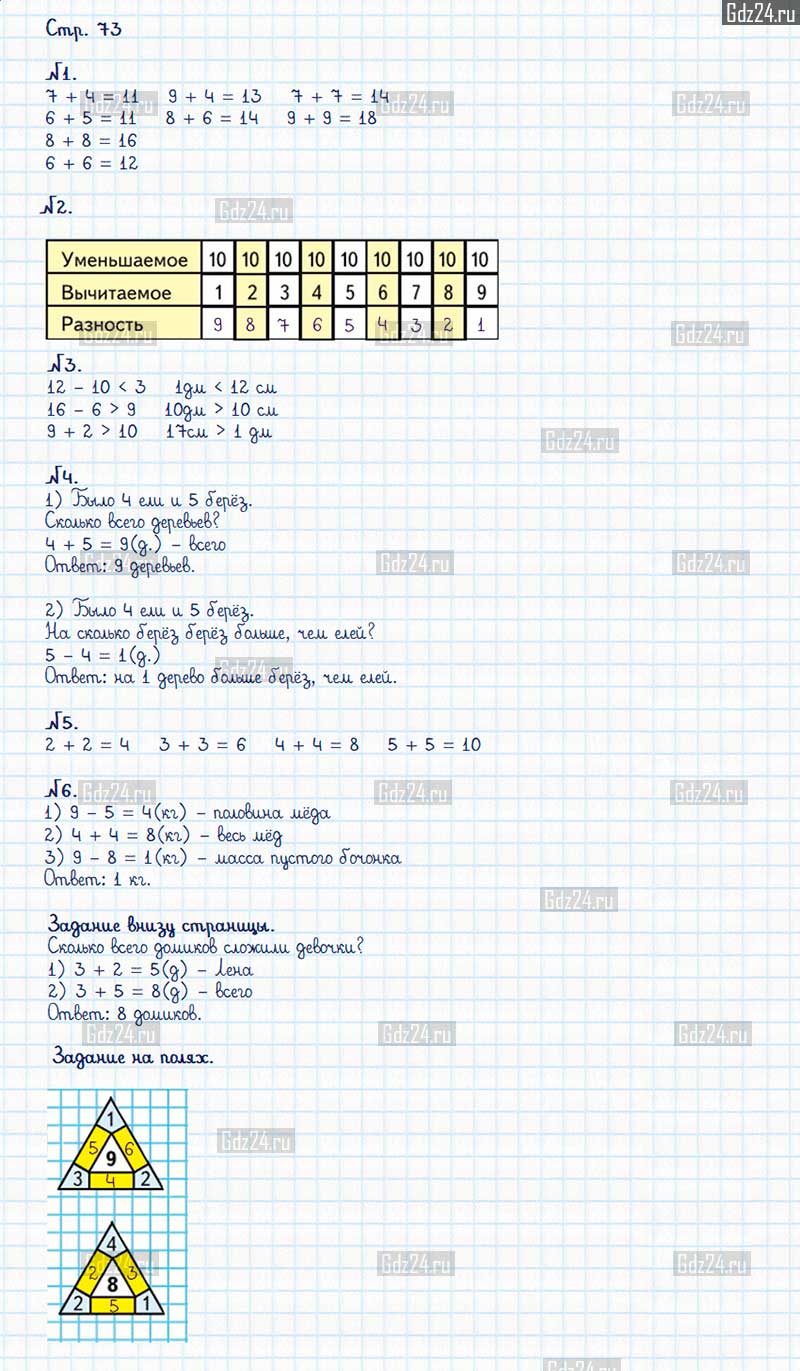 Gdz24.ru
Стр. 73
№1.
7 + 4 = 11 9 + 4 = 13 7 + 7 = 14
6 + 5 = 11 8 + 6 = 14 9 + 9 = 18
8 + 8 = 16
6 + 6 = 12
№2.
Уменьшаемое 10 10 10 10 10 10 10 10 10
Вычитаемое 1 2 3 4 5 6 7 8 9
Разность 9 8 7 6 5 4 3 2 1
№3.
12 - 10 < 3 1дм < 12 см
16 - 6 > 9 10дм > 10 см
9 + 2 > 10 17см > 1 дм
№4.
1) Было 4 ели и 5 берёз.
Сколько всего деревьев?
4 + 5 = 9(д.) - всего
Ответ: 9 деревьев.
2) Было 4 ели и 5 берёз.
На сколько берёз берёз больше, чем елей?
5 - 4 = 1(д.)
Ответ: на 1 дерево больше берёз, чем елей.
№5.
2 + 2 = 4 3 + 3 = 6 4 + 4 = 8 5 + 5 = 10
№6.
1) 9 - 5 = 4(кг) - половина мёда
2) 4 + 4 = 8(кг) - весь мёд
3) 9 - 8 = 1(кг) - масса пустого бочонка
Ответ: 1 кг.
Задание внизу страницы.
Сколько всего домиков сложили девочки?
1) 3 + 2 = 5(д) - Лена
2) 3 + 5 = 8(д) - всего
Ответ: 8 домиков.
Задание на полях.
1
5 6
9
3 4 2
4
2 3
8
2 5 1